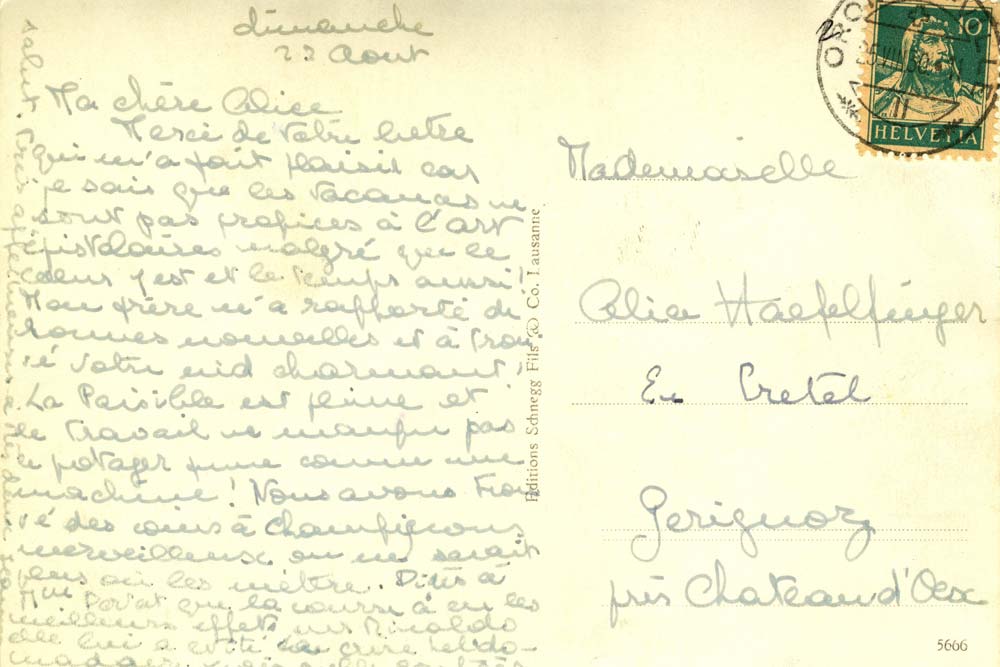 dimanche
22 Aout
Ma chère Alice
Merci de votre lettre
qui m'a fait plaisir car
je sais que les vacances ne
sont pas profices à l'art
épistolaires malgré que le
cœur y est et le temps aussi!
Mon frère m'a rapporté de
bonnes nouvelles et à trou
vé votre nid charmant!
La Paisible est pleine et
le travail ne manque pas
le potager fume comme une
machine! Nous avons trou
vé des coins à champignons
merveilleux on ne savait
plus où les mettre. Dites à
Mme que la a eu les
meilleurs effets sur Rinaldo
elle lui a évité
HELVETIA
10
25.VIII.30
Mademoiselle
Alice Haefelfinger
En Cretel
Gerignoz
près Chateau d'Oex
Editions Schnegg Fils & Co. Lausanne
5666